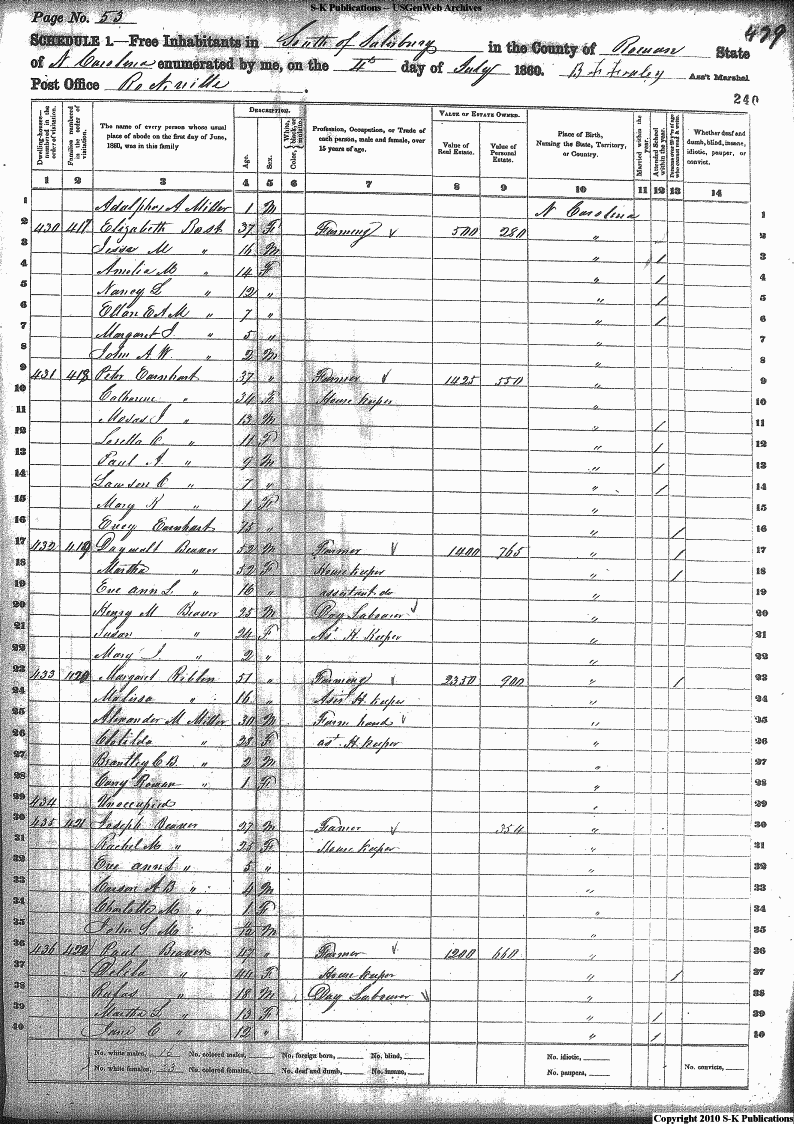 S-K Publications – USGenWeb Archives
Page No. 53
479
SCHEDULE 1.—Free Inhabitants in South of Salisbury in the County of Rowan State
of N Carolina enumerated by me, on the 4th day of July 1860. Ass't Marshal
Post Office Rockville.
240
Dwelling-houses—numbered in the order of visitation.
Families numbered in the order of visitation.
The name of every person whose usual place of abode on the first day of June, 1860, was in this family
DESCRIPTION.
Age.
Sex.
Color, White, black, or mulatto.
Profession, Occupation, or Trade of each person, male and female, over 15 years of age.
VALUE OF ESTATE OWNED.
Value of Real Estate.
Value of Personal Estate.
Place of Birth, Naming the State, Territory, or Country.
Married within the year.
Attended School within the year.
Persons over 20 y'rs of age who cannot read & write.
Whether deaf and dumb, blind, insane, idiotic, pauper, or convict.
1 2 3 4 5 6 7 8 9 10 11 12 13 14
1 Adolphus A Miller 1 M N Carolina 1
2 430 417 Elizabeth Rash 37 F Farming 500 280 " 2
3 Jesse M " 16 M " / 3
4 Amelia M " 14 F " / 4
5 Nancy L " 12 " " / 5
6 Ellen E A M " 7 " " / 6
7 Margaret J " 5 " " 7
8 John A W. " 2 M " 8
9 431 418 Peter Earnhart 37 " Farmer 1425 550 " 9
10 Catharine " 34 F House Keeper " 10
11 Moses J " 13 M " / 11
12 Loretta C " 11 F " / 12
13 Paul A. " 9 M " / 13
14 Lawson C " 7 " " / 14
15 Mary K " 1 F " 15
16 Evey Earnhart 75 " " / 16
17 432 419 Daywalt Beaver 52 M Farmer 1400 765 " / 17
18 Martha " 52 F House Keeper " / 18
19 Eve ann L. " 16 " assistant do " 19
20 Henry M Beaver 25 M Day Labourer " 20
21 Susan " 24 F As' H. Keeper " 21
22 Mary J. " 2 " " 22
23 433 420 Margaret Riblin 51 " Farming 2350 900 " / 23
24 Malissa " 16 " Asst H. Keeper " 24
25 Alexander M Miller 30 M Farm hand " 25
26 Clotilda " 28 F ast H. Keeper " 26
27 Brantley C B. " 2 M " 27
28 Rowan " 1 F " 28
29 434 Unoccupied " 29
30 435 421 Joseph Beaver 27 M Farmer 350 " 30
31 Rachel M " 25 F House Keeper " 31
32 Eve ann L " 5 " " 32
33 Carson A B " 4 M " 33
34 Charlotte M " 1 F " 34
35 John S. M " M " 35
36 436 422 Paul Beaver 47 " Farmer 1200 660 " 36
37 Delila " 44 F House Keeper " / 37
38 Rufus " 18 M Day Labourer " 38
39 Martha L " 13 F " / 39
40 Jane C " 12 " " / 40
No. white males, 16 No. colored males, No. foreign born, No. blind, No. idiotic,
No. white females, 23 No. colored females, No. deaf and dumb, No. insane, No. paupers, No. convicts,
Copyright 2010 S-K Publications